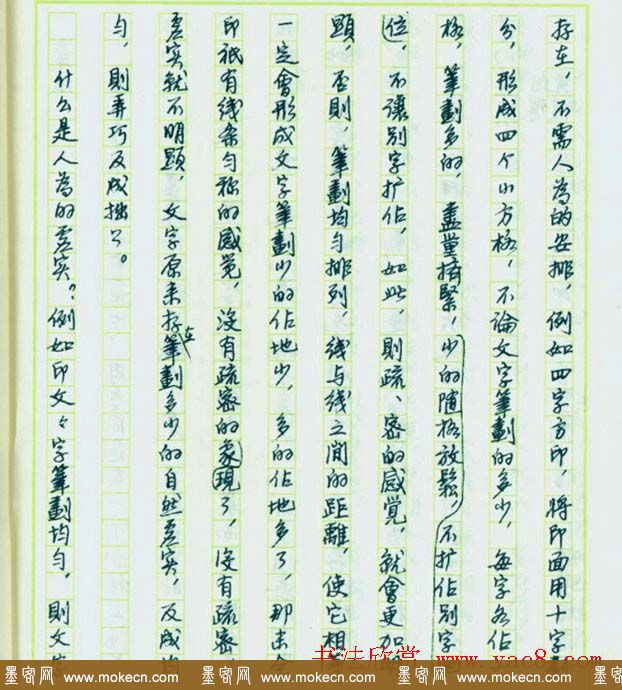 存在，不需人为的安排，例如四字方印，将印面用十字
分，形成四个小方格，不論文字筆劃的多少，每字各佔
格，筆劃多的，盡量擠緊，少的随格放鬆，不扩佔别字
位，不讓别字扩佔，如此，則疏、密的感觉，就會更加
顕，否則，筆劃均匀排列，线与线之间的距離，使它相
一定會形成文字筆劃少的佔地少，多的佔地多了，那末
印祇有线条匀称的感觉，没有疏密的象現了，没有疏密，
虚实就不明顕，文字原来存在筆劃多少的自然虚实，反成
匀，則弄巧反成拙了。
什么是人為的虚实？例如印文々字筆劃均匀，則文
书法欣赏 www.yac8.com
墨客网 www.mokecn.com 墨客网 www.mokecn.com 墨客网 www.mokecn.com